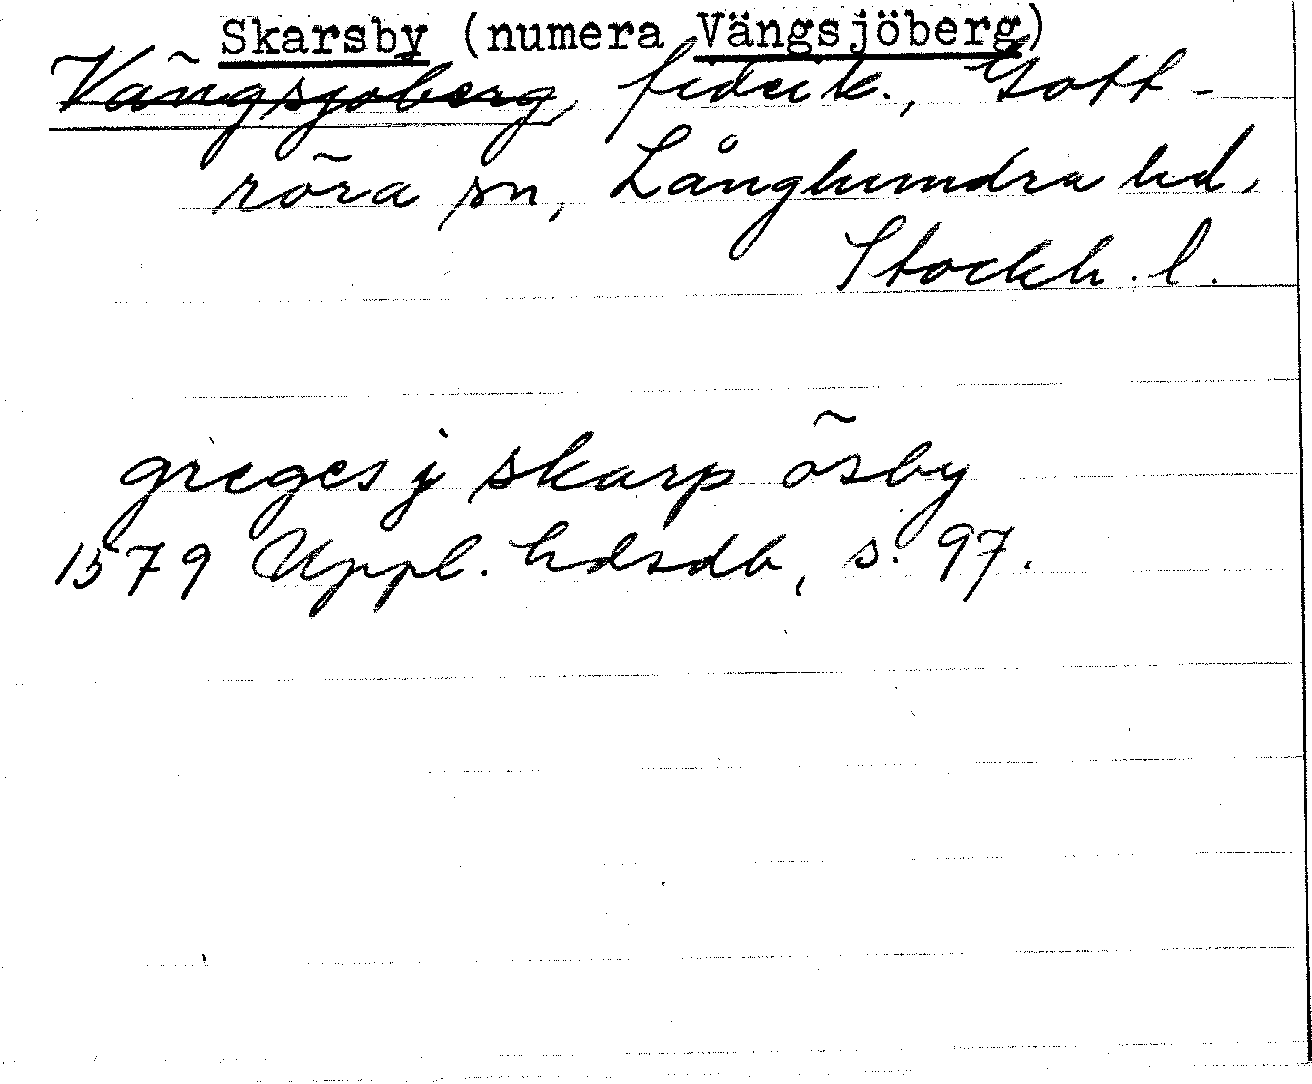 Skarsby (numera Vängsjöberg)
Vängsjöberg, fideik., Gott-
röra sn, Långhundra hd,
Stockh. l.
greges j skarp ösby
1579 Uppl. hdsdb, s. 97.